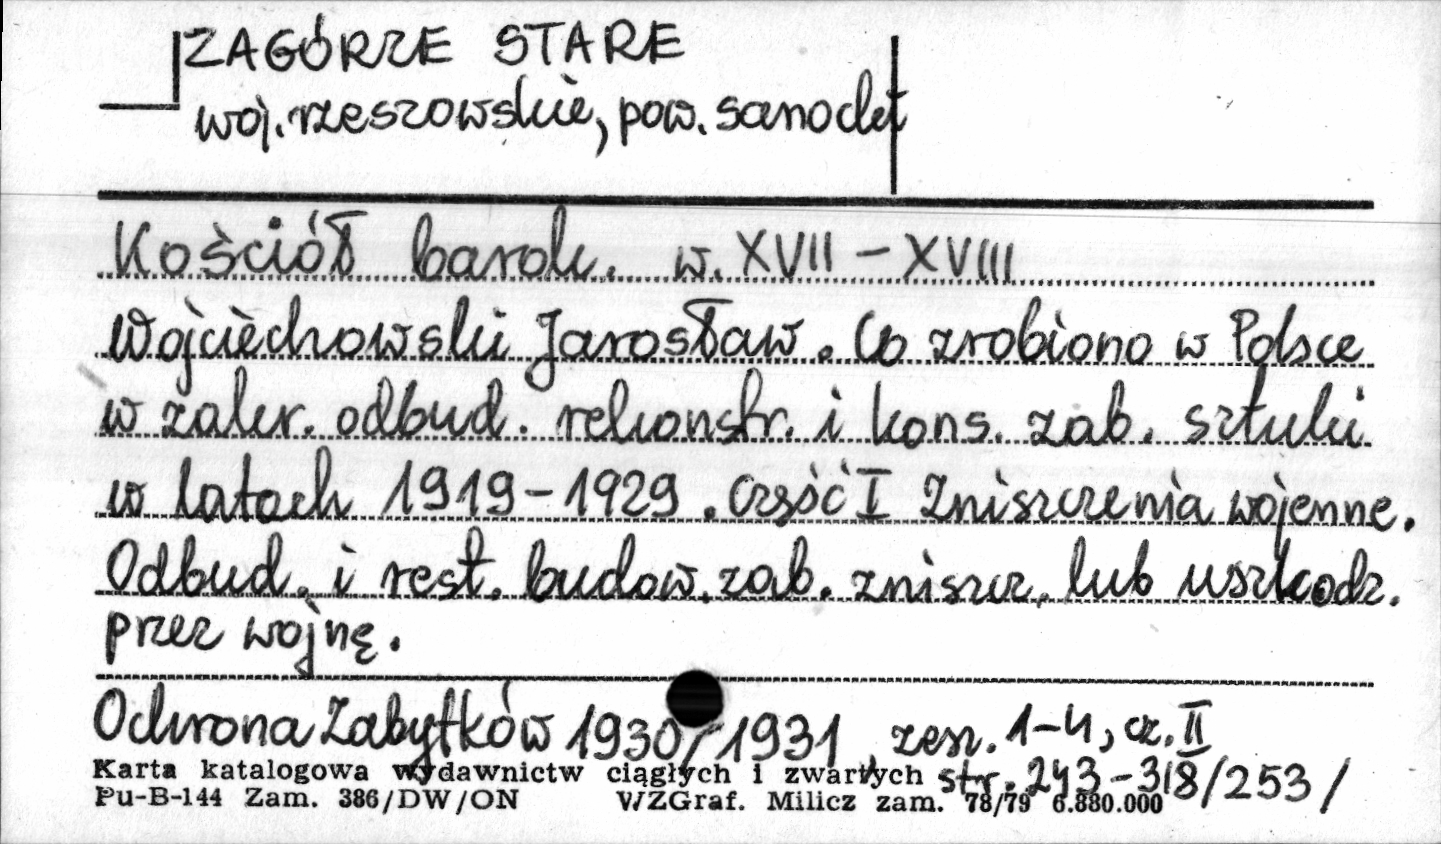 ZAGÓRZE STARE
woj. rzeszowskie, pow. sanocki
Kościół barok. w. XVII – XVIII
Wojciechowski Jarosław. Co zrobiono w Polsce
w zakr. odbud. rekonstr. i kons. zab. sztuki
w latach 1919 – 1929. Część I Zniszczenia wojenne.
Odbud. i rest. budow. zab. zniszcz. lub uszkodz.
przez wojnę.
Ochrona Zabytków 1930/1931, zesz. 1-4, cz. II
str. 243-318/253/
Karta katalogowa wydawnictw ciągłych i zwartych
Pu-B-144 Zam. 386/DW/ON WZGraf. Milicz zam. 78/79 6.880.000